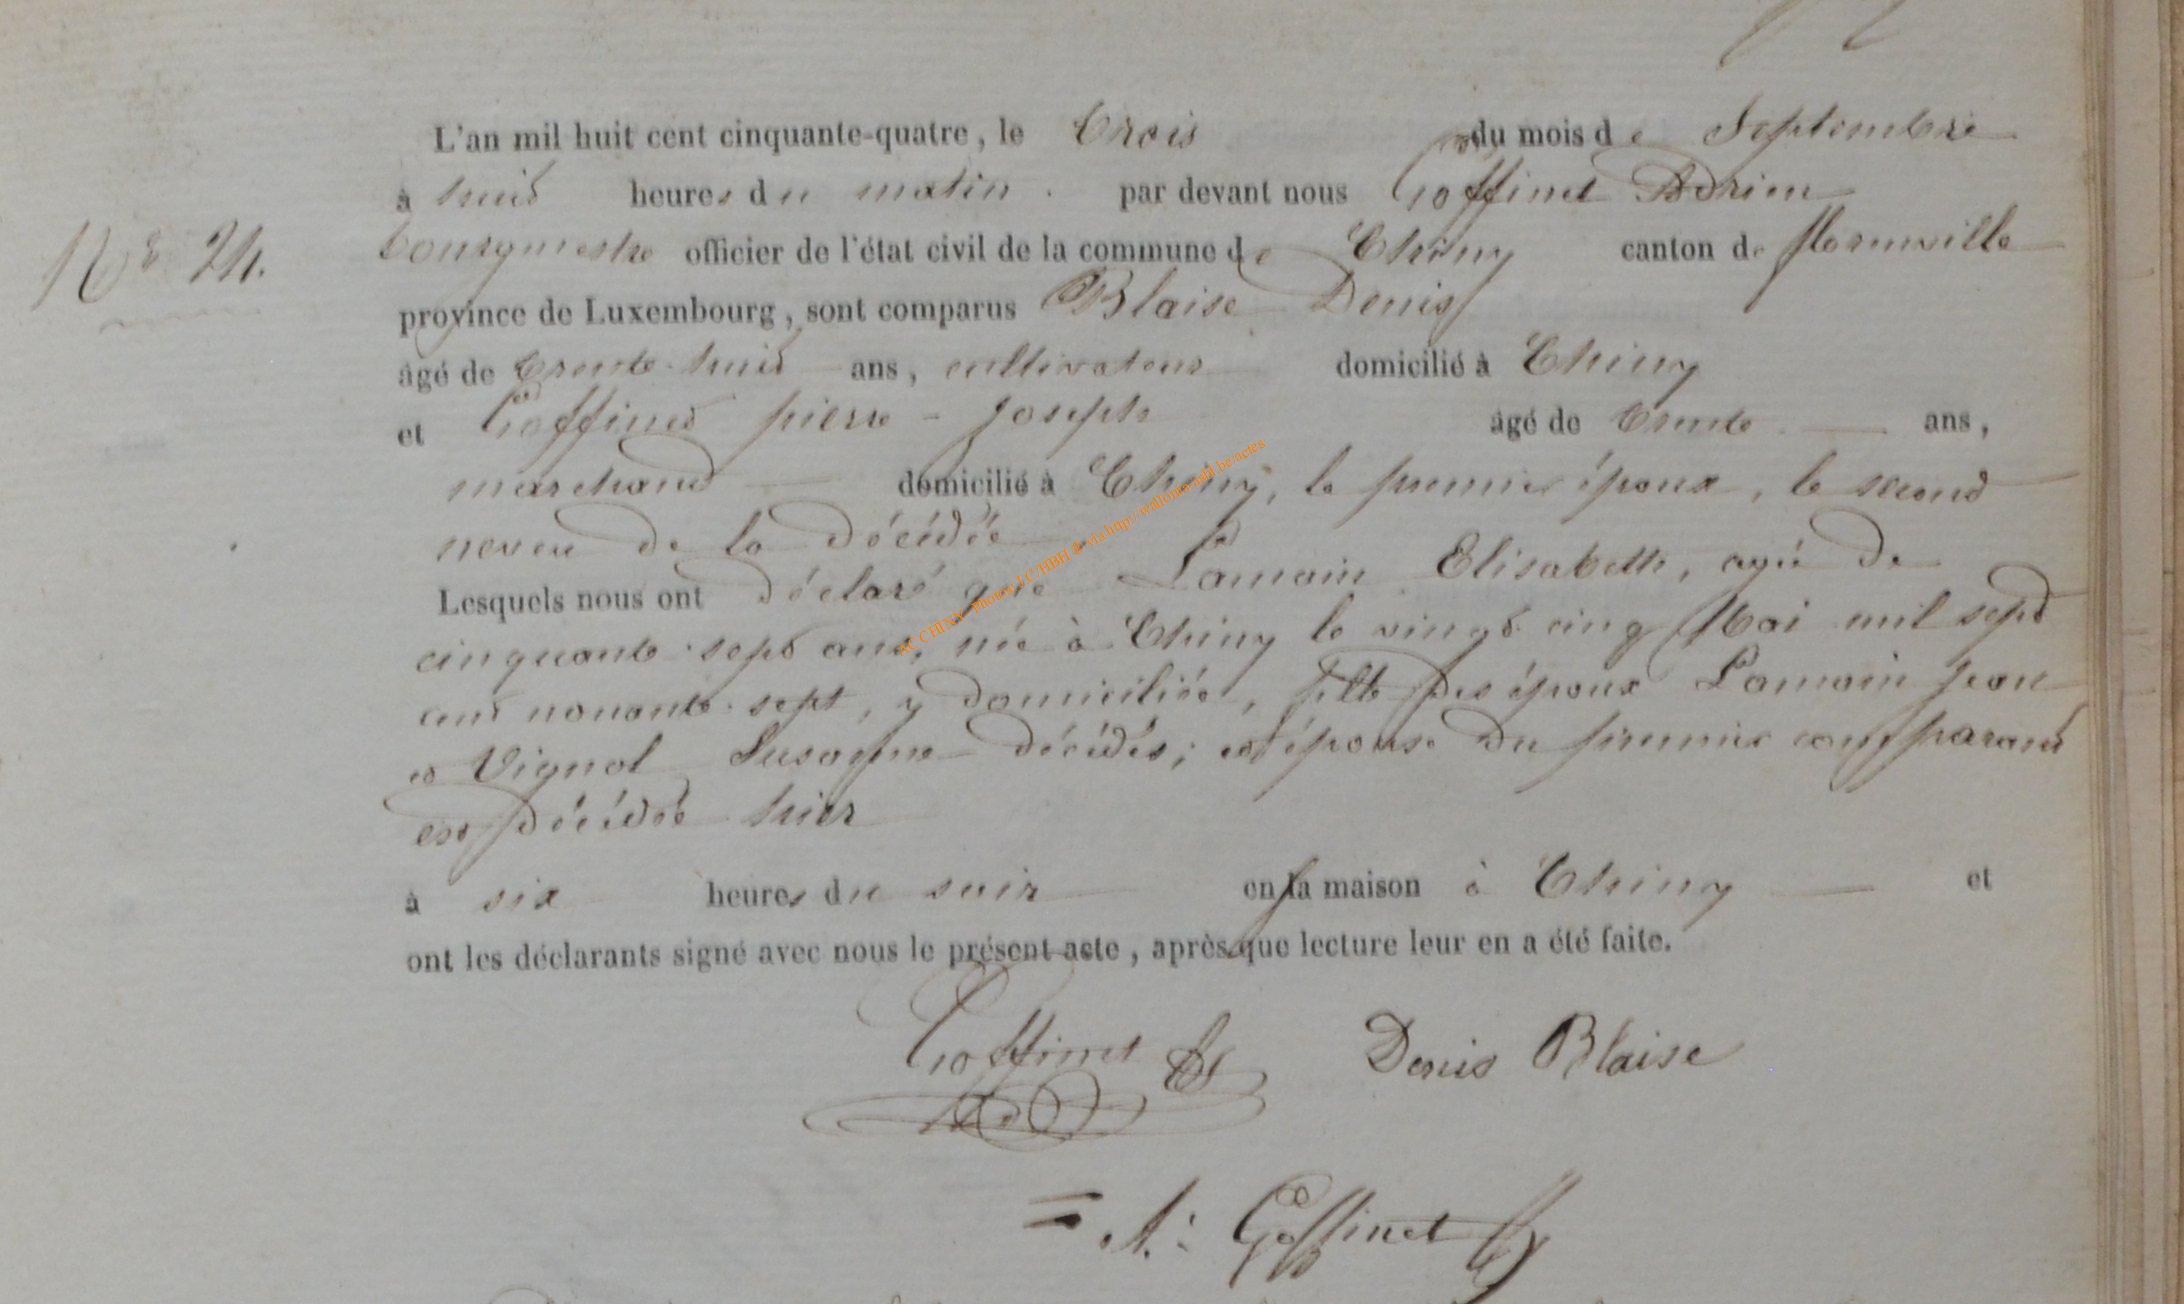 L'an mil huit cent cinquante-quatre, le trois du mois de Septembre
à huit heures du matin. par devant nous Goffinet Adrien
bourgmestre officier de l'état civil de la commune de Chiny canton de florenville
N° 24.
province de Luxembourg, sont comparus Blaise Denis
âgé de trente-huit ans, cultivateur domicilié à Chiny
et Goffinet pierre-Joseph âgé de trente ans,
marchand domicilié à Chiny, le premier époux, le second
neveu de la décédée
Lesquels nous ont déclaré que Lamain Elisabeth, agée de
cinquante-sept ans, née à Chiny le vingt-cinq Mai mil sept
cent nonante-sept, y domiciliée, fille des époux Lamain Jean
et Vignol Susanne décédés; et épouse du premier comparant
est décédée hier
à six heures du soir en sa maison à Chiny et
ont les déclarants signé avec nous le présent acte, après que lecture leur en a été faite.
Goffinet Denis Blaise
A: Goffinet
AC CHINY Photos LC/HBH @ via http://wallonia-asbl.be/actes